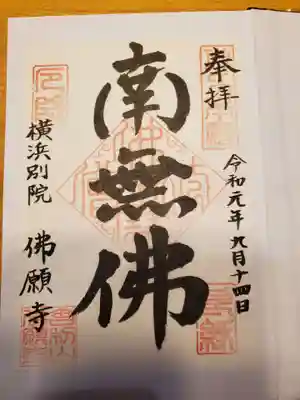 奉拝
令和元年九月十四日
南無佛
横浜別院 佛願寺